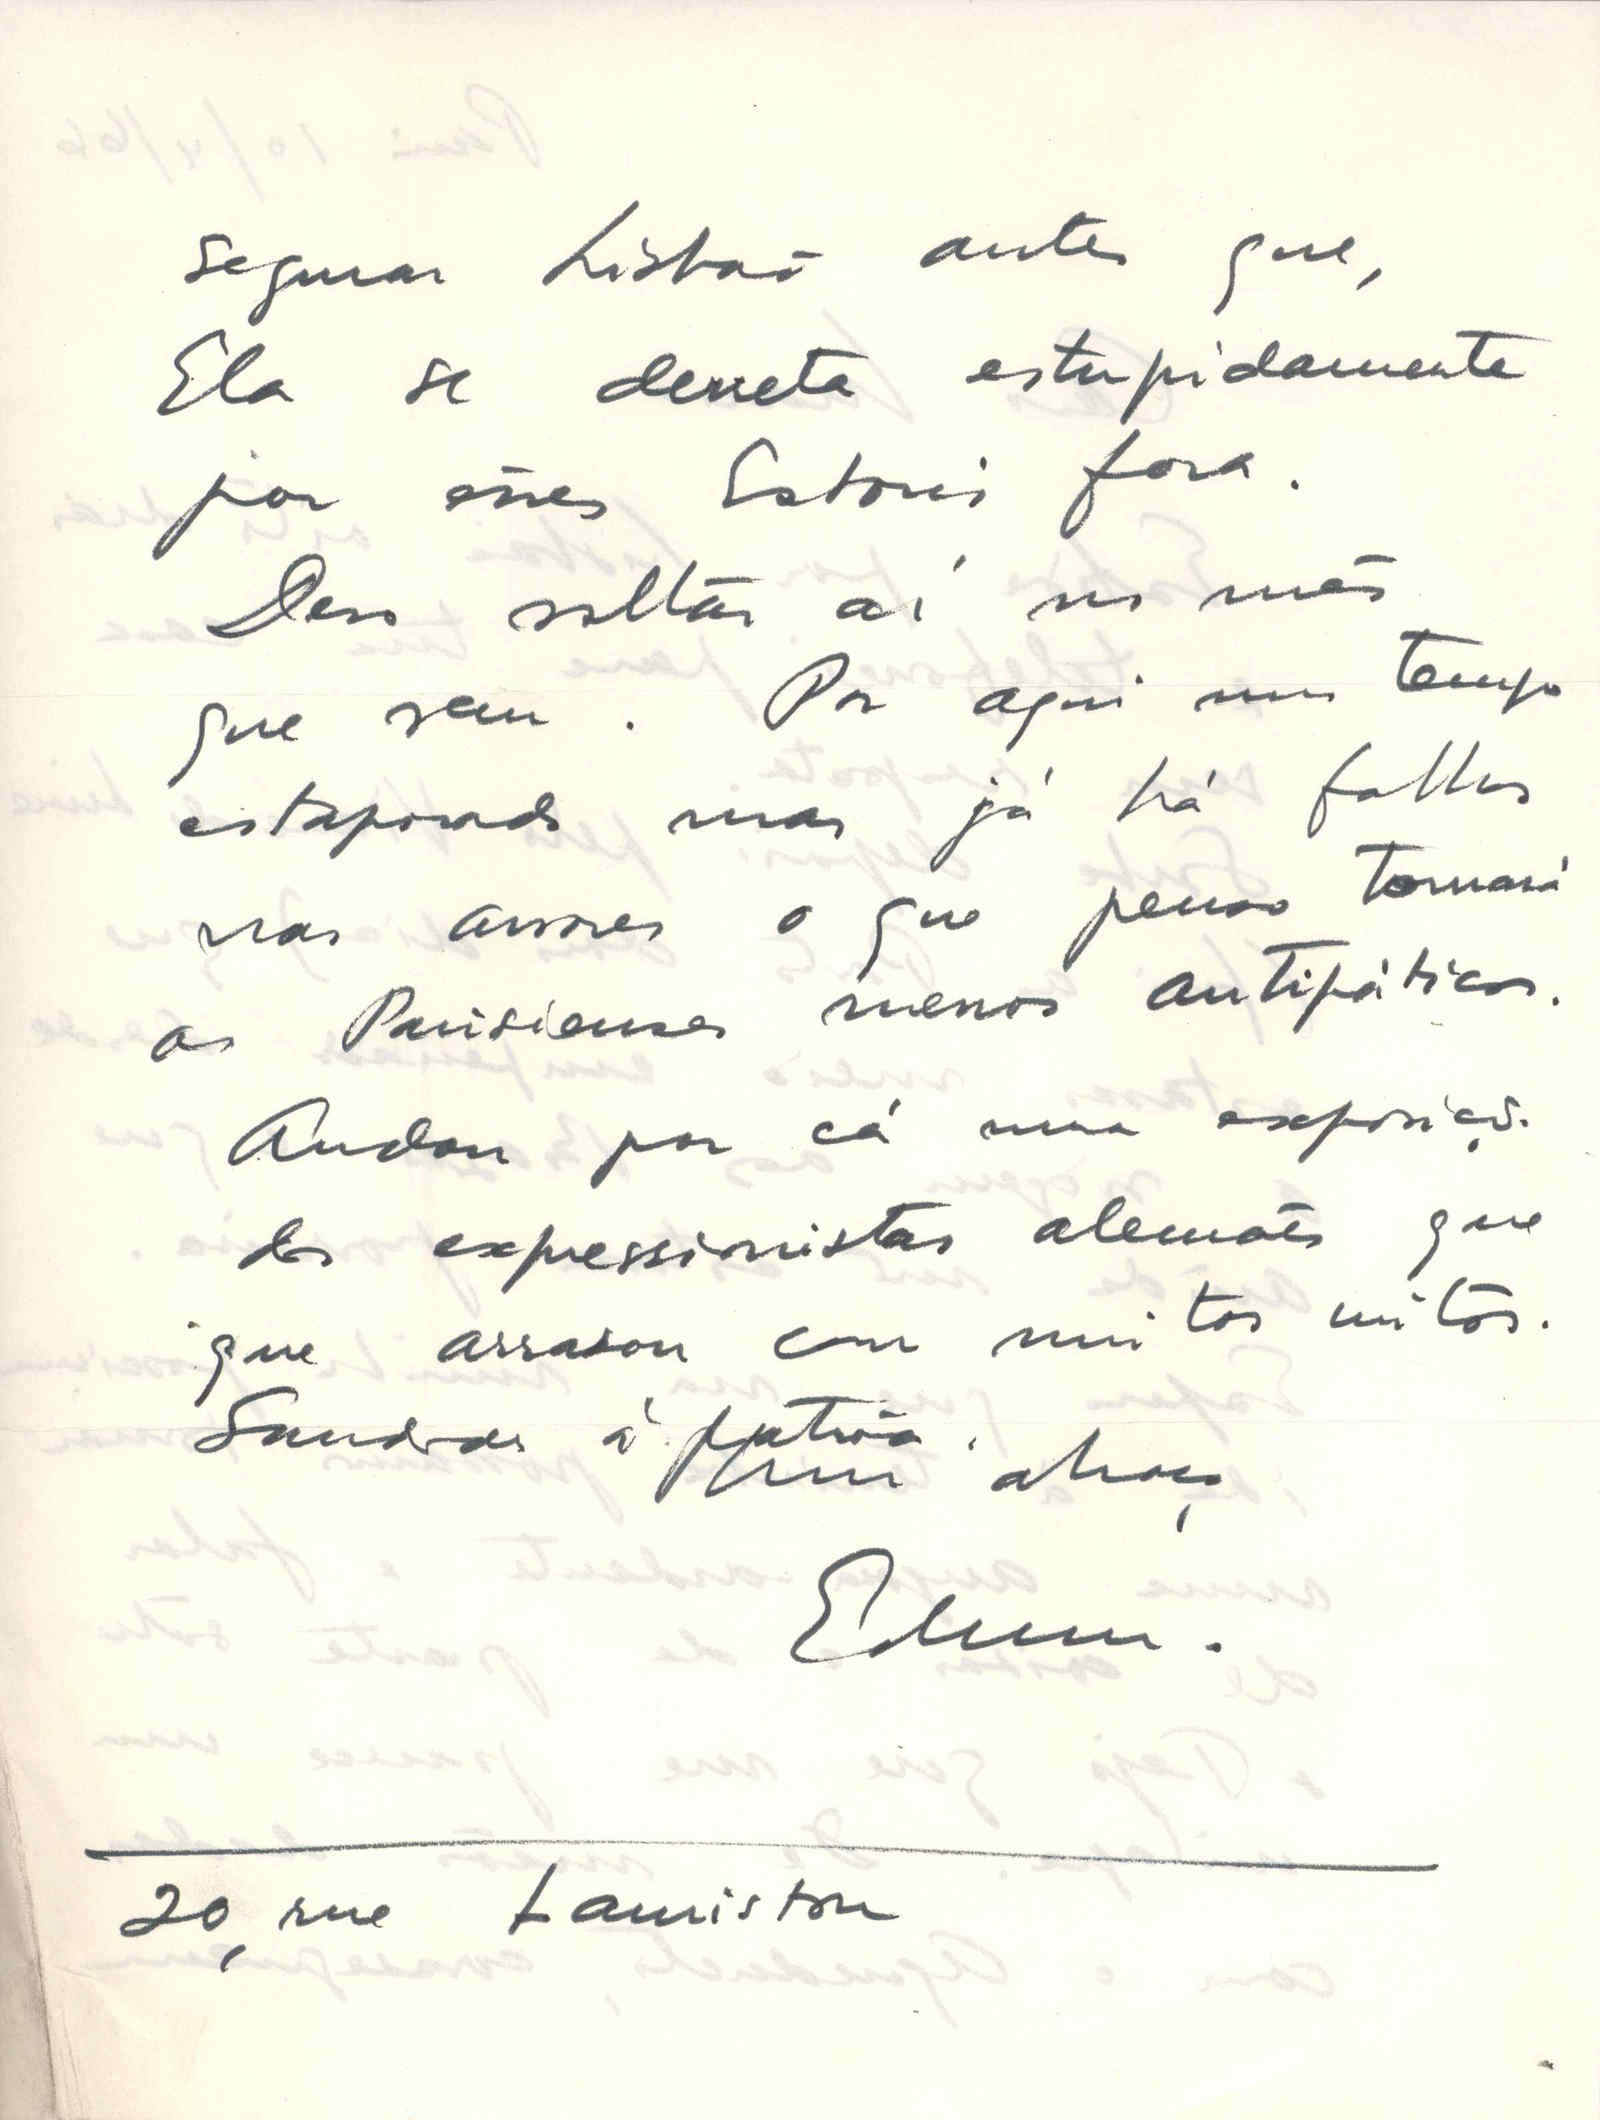 segurar Lisboa antes que,
Ela se derreta estupidamente
por êsses Estoris fora.
Devo voltar aí no mês
que vem. Por aqui um tempo
estaporado mas já há folhas
nas arvores o que penso tornará
os Parisienses menos antipáticos.
Andou por cá uma exposição
dos expressionistas alemães que
que arrasou com muitos mitos.
Saudades à patroa.
Um abraço
20, rue Lauriston